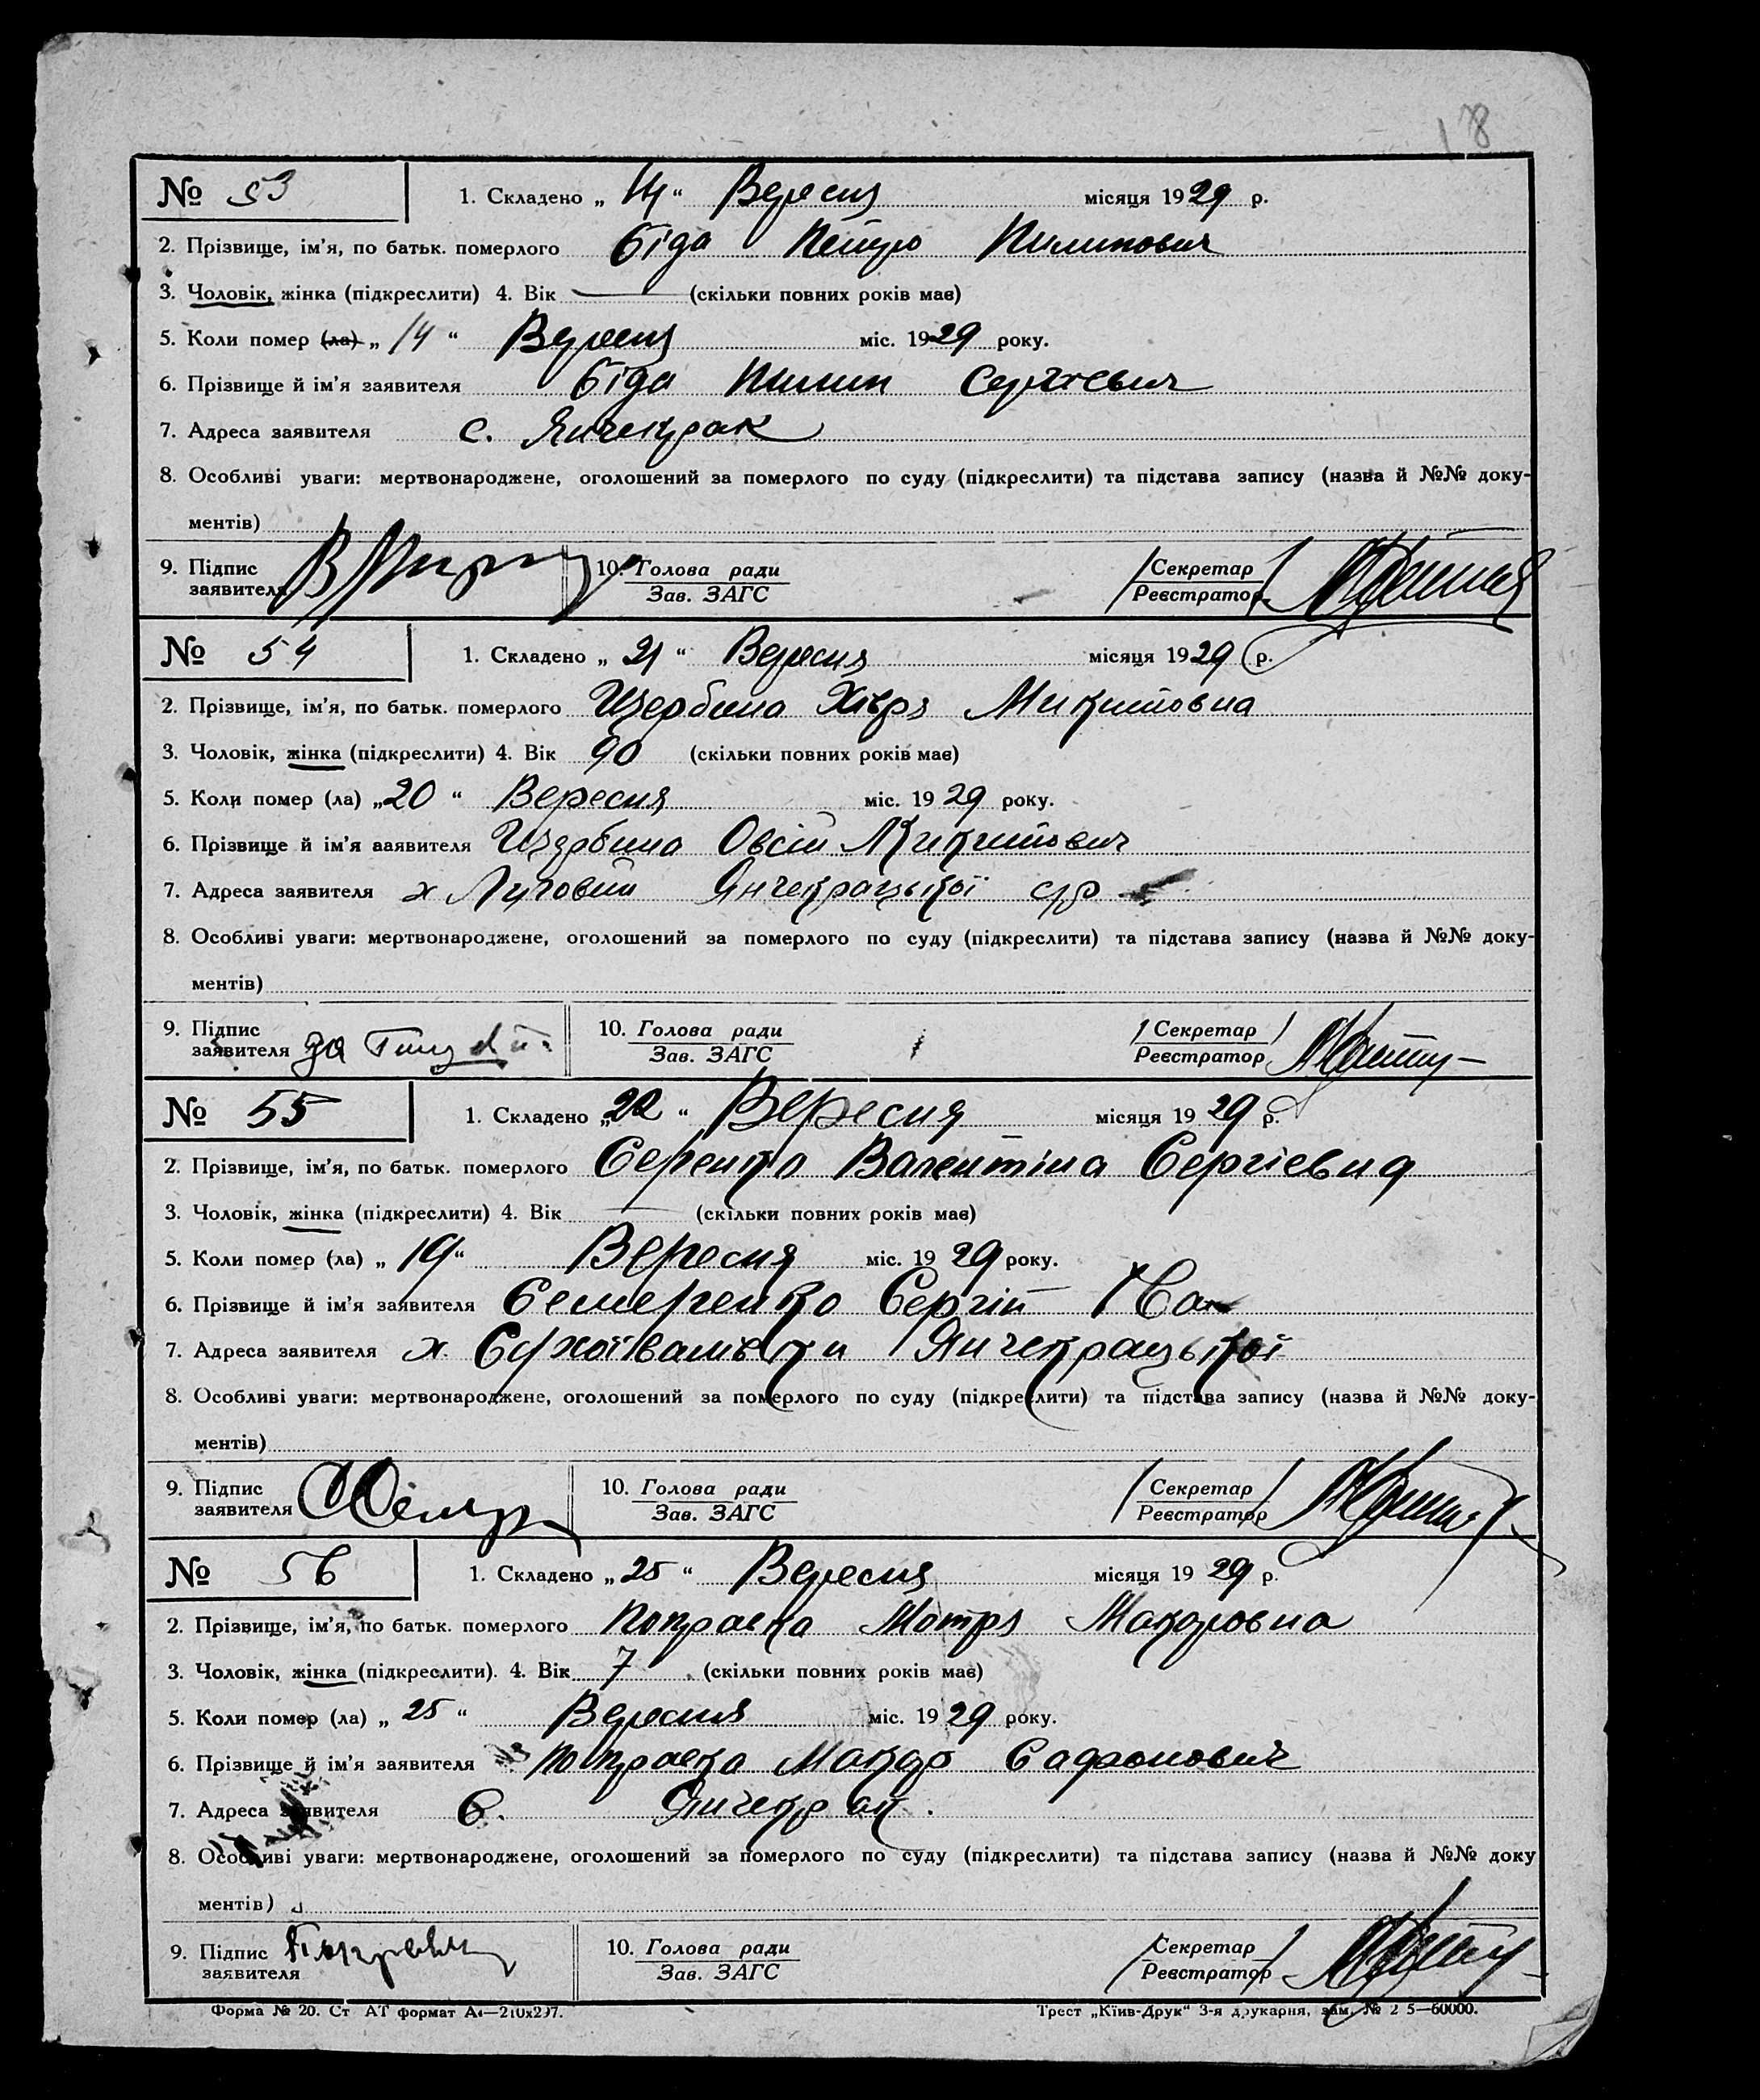 178
№ 53 1. Складено „ 14 “ Вересня місяця 1929 р.
2. Прізвище, ім’я, по батьк. померлого Біда Петро Пилипович
3. Чоловік, жінка (підкреслити) 4. Вік — (скільки повних років має)
5. Коли помер (ла) „ 14 “ Вересня міс. 1929 року.
6. Прізвище й ім’я заявителя Біда Пилип Сергієвич
7. Адреса заявителя с. Янчекрак
8. Особливі уваги: мертвонароджене, оголошений за померлого по суду (підкреслити) та підстава запису (назва й №№ доку-
ментів)
9. Підпис заявителя 10. Голова ради Зав. ЗАГС Секретар Реєстратор
№ 54 1. Складено „ 21 “ Вересня місяця 1929 р.
2. Прізвище, ім’я, по батьк. померлого Щербина Хівря Микитовна
3. Чоловік, жінка (підкреслити) 4. Вік 90 (скільки повних років має)
5. Коли помер (ла) „ 20 “ Вересня міс. 1929 року.
6. Прізвище й ім’я заявителя Щербина Овсій Микитович
7. Адреса заявителя х Луговий Янчекрацької с/р
8. Особливі уваги: мертвонароджене, оголошений за померлого по суду (підкреслити) та підстава запису (назва й №№ доку-
ментів)
9. Підпис заявителя за 10. Голова ради Зав. ЗАГС Секретар Реєстратор
№ 55 1. Складено „ 22 “ Вересня місяця 1929 р.
2. Прізвище, ім’я, по батьк. померлого Валентіна Сергієвна
3. Чоловік, жінка (підкреслити) 4. Вік — (скільки повних років має)
5. Коли помер (ла) „ 19 “ Вересня міс. 1929 року.
6. Прізвище й ім’я заявителя Семеренко Сергій Іван
7. Адреса заявителя х. Янчекрацької
8. Особливі уваги: мертвонароджене, оголошений за померлого по суду (підкреслити) та підстава запису (назва й №№ доку-
ментів)
9. Підпис заявителя 10. Голова ради Зав. ЗАГС Секретар Реєстратор
№ 56 1. Складено „ 25 “ Вересня місяця 1929 р.
2. Прізвище, ім’я, по батьк. померлого Покравка Мотря Макаровна
3. Чоловік, жінка (підкреслити). 4. Вік 7 (скільки повних років має)
5. Коли помер (ла) „ 25 “ Вересня міс. 1929 року.
6. Прізвище й ім’я заявителя Покравка Макар Сафронович
7. Адреса заявителя С. Янчекрак.
8. Особливі уваги: мертвонароджене, оголошений за померлого по суду (підкреслити) та підстава запису (назва й №№ доку
ментів)
9. Підпис заявителя 10. Голова ради Зав. ЗАГС Секретар Реєстратор
Форма № 20. Ст АТ формат А4—210х297. Трест „Київ-Друк“ 3-я друкарня, зам. № 2 5—60000.